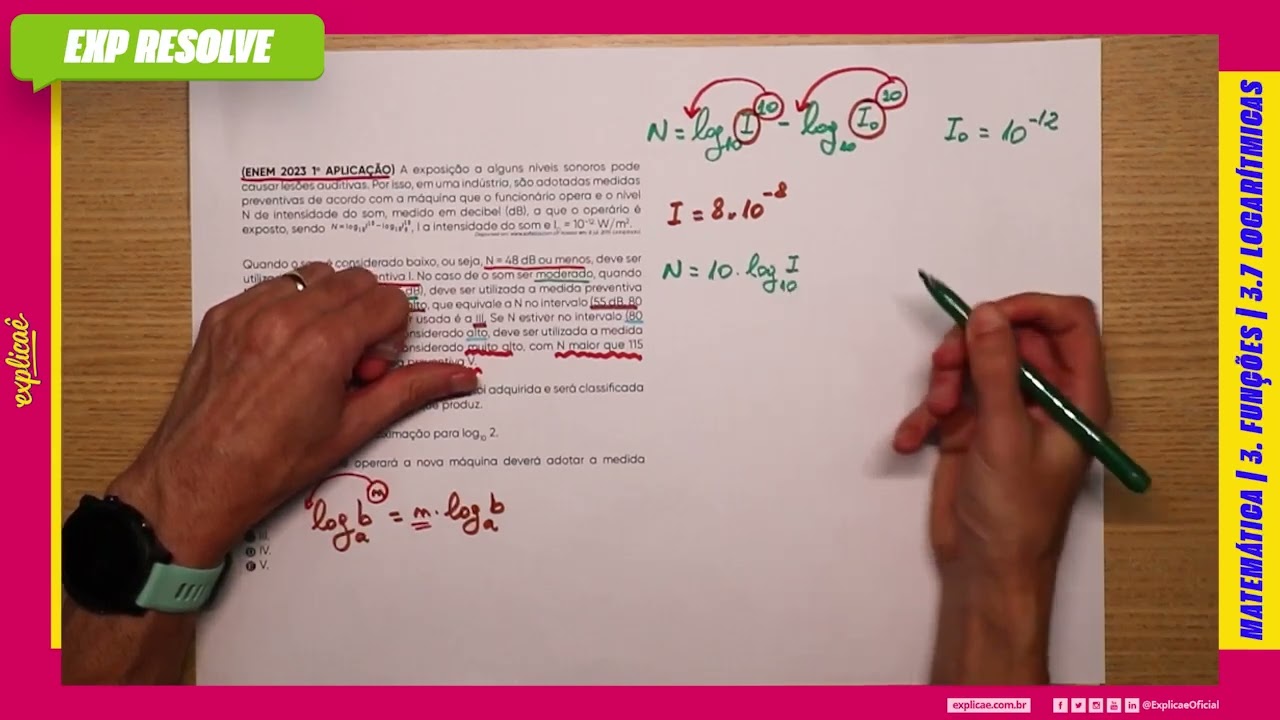 EXP RESOLVE
(ENEM 2023 1ª APLICAÇÃO) A exposição a alguns níveis sonoros pode
causar lesões auditivas. Por isso, em uma indústria, são adotadas medidas
preventivas de acordo com a máquina que o funcionário opera e o nível
N de intensidade do som, medido em decibel (dB), a que o operário é
exposto, sendo N = log₁₀ I¹⁰ − log₁₀ I₀¹⁰, I a intensidade do som e I₀ = 10⁻¹² W/m².
Quando o som é considerado baixo, ou seja, N = 48 dB ou menos, deve ser
I. No caso de o som ser moderado, quando
dB), deve ser utilizada a medida preventiva
que equivale a N no intervalo (55 dB, 80
usada é a III. Se N estiver no intervalo (80
alto, deve ser utilizada a medida
muito alto, com N maior que 115
V.
adquirida e será classificada
que produz.
para log₁₀ 2.
operará a nova máquina deverá adotar a medida
III.
IV.
V.
log_a b^m = m · log_a b
N = log₁₀ I¹⁰ - log₁₀ I₀¹⁰
I₀ = 10⁻¹²
I = 8 . 10⁻⁸
N = 10 . log₁₀ I
explicaê
MATEMÁTICA | 3. FUNÇÕES | 3.7 LOGARÍTMICAS
explicae.com.br
@ExplicaeOficial